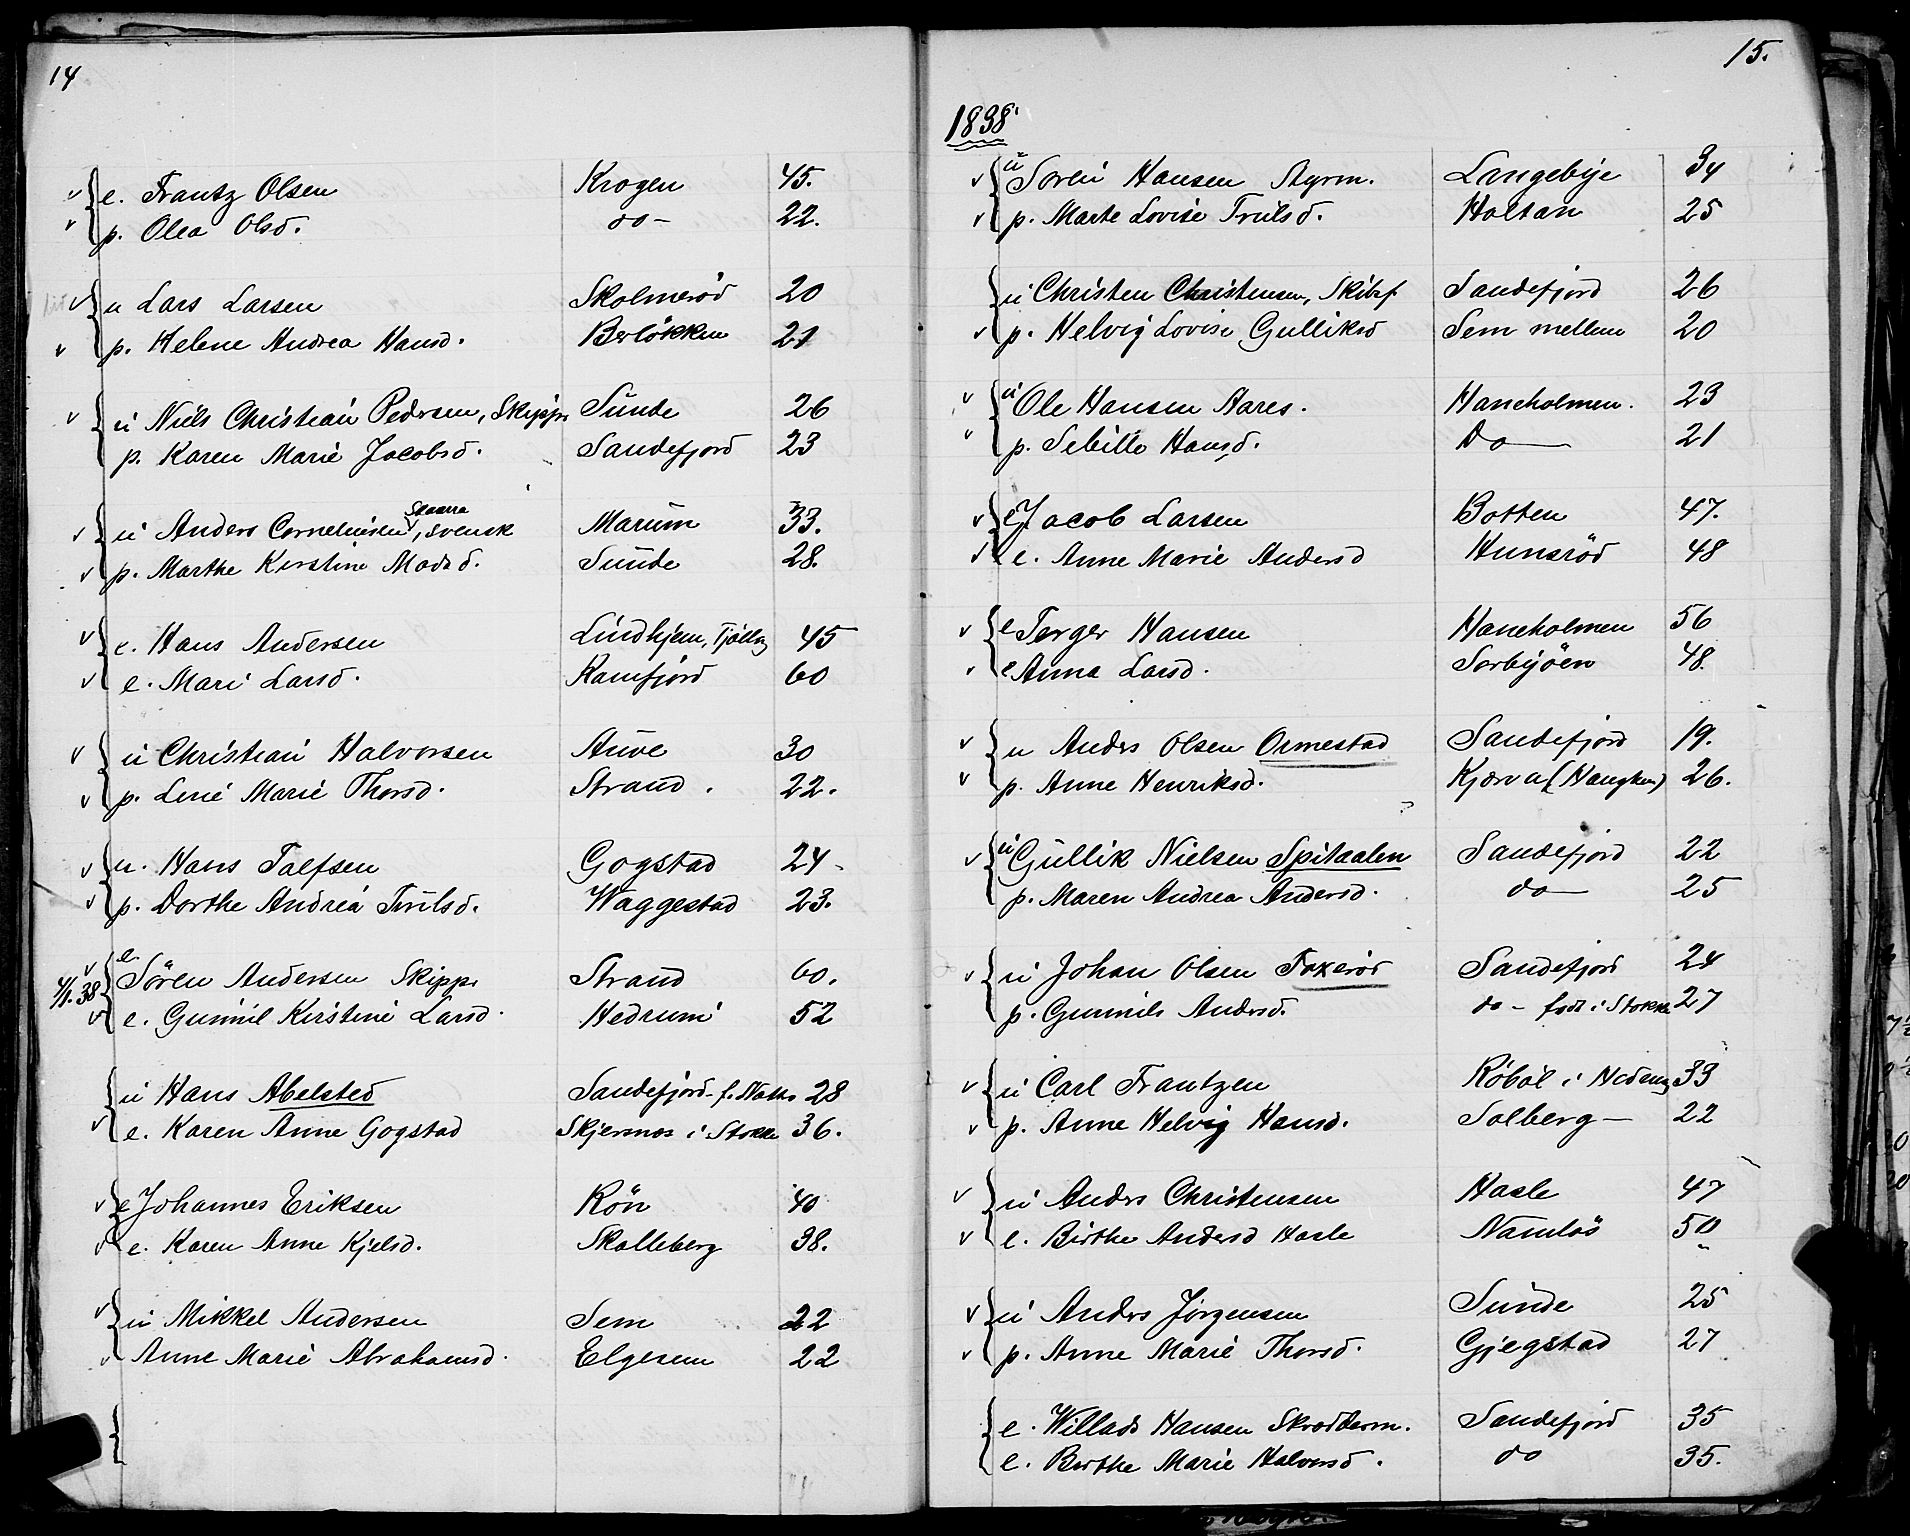 14
e. Frantz Olsen Krogen 45.
p. Olea Olsd. do - 22.
u Lars Larsen Skolmerød 20
p. Helene Andrea Hansd. Berløkken 21
u Niels Christian Pedersen, Skippr Sunde 26
p. Karen Marie Jacobsd. Sandefjord 23
Skaarra
u Anders Corneliusen, svensk Marum 33.
p. Marthe Kirstine Madsd. Sunde 28.
e. Hans Andersen Lindhjem, Tjølling 45
e. Mari Larsd. Kamfjord 60
u Christian Halvorsen Auve 30
p. Line Marie Thorsd. Strand. 22.
u. Hans Tolfsen Gogstad 24-
p. Dorthe Andrea Trulsd. Waggestad 23.
e. Sören Andersen Skippr Strand 60.
4/1. 38
e. Gunnil Kirstine Larsd. Hedrum 52
u Hans Abelsted Sandefjord - f. Nøtter 28
e. Karen Anne Gogstad Skjersnos i Stokke 36.
e Johannes Eriksen Rön 40
e. Karen Anne Kjelsd. Skolleberg 38.
u Mikkel Andersen Sem 22
Anne Marie Abrahamsd. Elgesem 22
15.
1838
u Soren Hansen Styrm. Langebye 34
p. Marte Lovise Trulsd. Holtan 25
u Christen Christensen, Skibsf. Sandefjord 26
p. Helvig Lovise Gulliksd Sem mellem 20
u Ole Hansen Aares. Haneholmen. 23
p. Sebille Hansd. Do 21
e Jacob Larsen Botten 47.
e. Anne Marie Andersd Hunsrød 48
e Terger Hansen Haneholmen 56
e Anna Larsd. Sorbyöen 48.
u Anders Olsen Ormestad Sandefjord 19.
p. Anne Henriksd. Kjærva (Haugken) 26.
u Gullik Nielsen Spitaalen Sandefjord 22
p. Maren Andrea Andersd. do 25
u Johan Olsen Foxerød Sandefjord 24
p. Gunnils Andersd. do - født i Stokke 27
u Carl Frantzen Röböl i Nedenæs 33
p. Anne Helvig Hansd. Solberg - 22
u Anders Christensen Hasle 47
e. Birthe Andersd Hasle Namløs 50
u Anders Jørgensen Sunde 25
p. Anne Marie Thorsd. Gjegstad 27
e. Willads Hansen Skrædderm. Sandefjord 35
e. Berthe Marie Halvorsd. do 35.